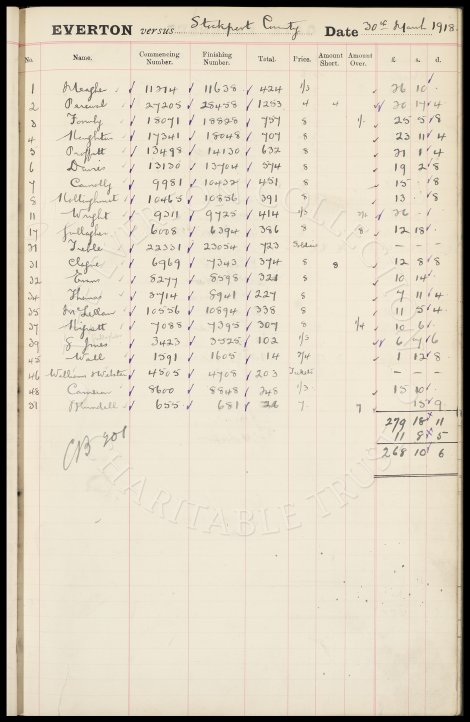 EVERTON versus Stockport County Date 30th March 1918.
No. Name. Commencing Number. Finishing Number. Total. Price. Amount Short. Amount Over. £ s. d.
1 Meagher 11374 11638 424 1/3 26 10
2 Percival 27205 28458 1253 4 4 20 17 4
3 18071 18828 757 8 1/- 25 5 8
4 Heighton 17341 18048 707 8 23 11 4
5 Proffitt 13498 14130 632 8 21 1 4
6 Davies 13130 13704 574 8 19 2 8
7 Connolly 9981 10432 451 8 15 8
8 10465 10856 391 8 13 8
11 Wright 9311 9725 414 1/3 26
17 Gallagher 6008 6394 386 8 12 18
21 Treble 22331 23054 723 Soldiers – – –
31 Clegie 6969 7343 374 8 8 12 8 8
32 Evans 8277 8598 321 8 10 14
34 Thomas 8714 8941 227 8 7 11 4
35 McLellan 10556 10894 338 8 11 5 4
37 7088 7395 307 8 1/4 10 6
39 G Jones 3423 3525 102 1/3 6 7 6
45 Wall 1591 1605 14 2/4 1 12 8
46 William & Webster 4505 4708 203 Tickets – – –
48 Cameron 8600 8848 248 1/3 15 10
31 Blundell 655 681 26 7 7 15 9
279 18 11
11 8 5
CB 201
268 10 6
CHARITABLE TRUST